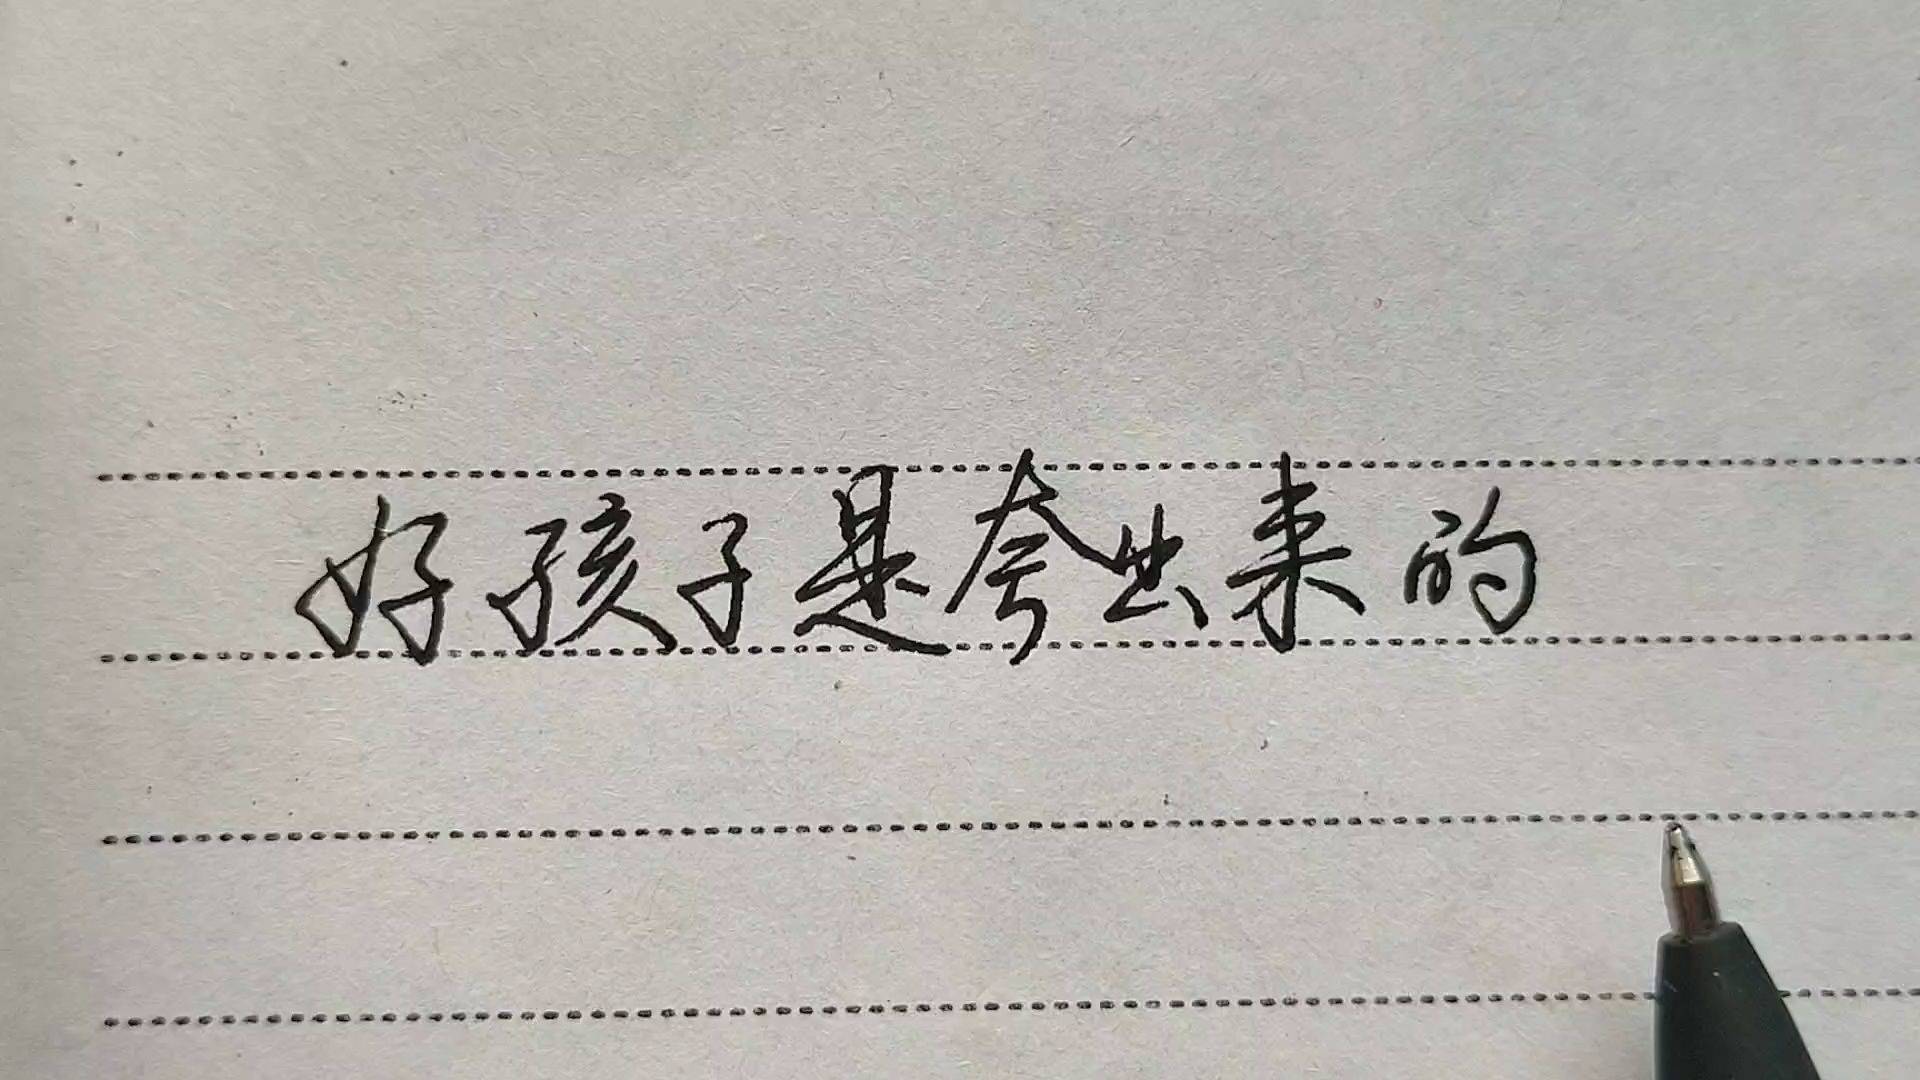 好孩子是夸出来的